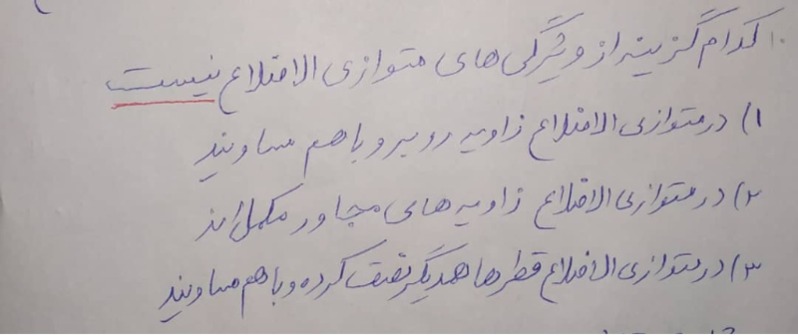 ۱۰ کدام گزینه از ویژگی های متوازی الاضلاع نیست
۱) در متوازی الاضلاع زاویه روبرو با هم مساویند
۲) در متوازی الاضلاع زاویه های مجاور مکمل اند
۳) در متوازی الاضلاع قطرها همدیگر نصف کرده و با هم مساویند